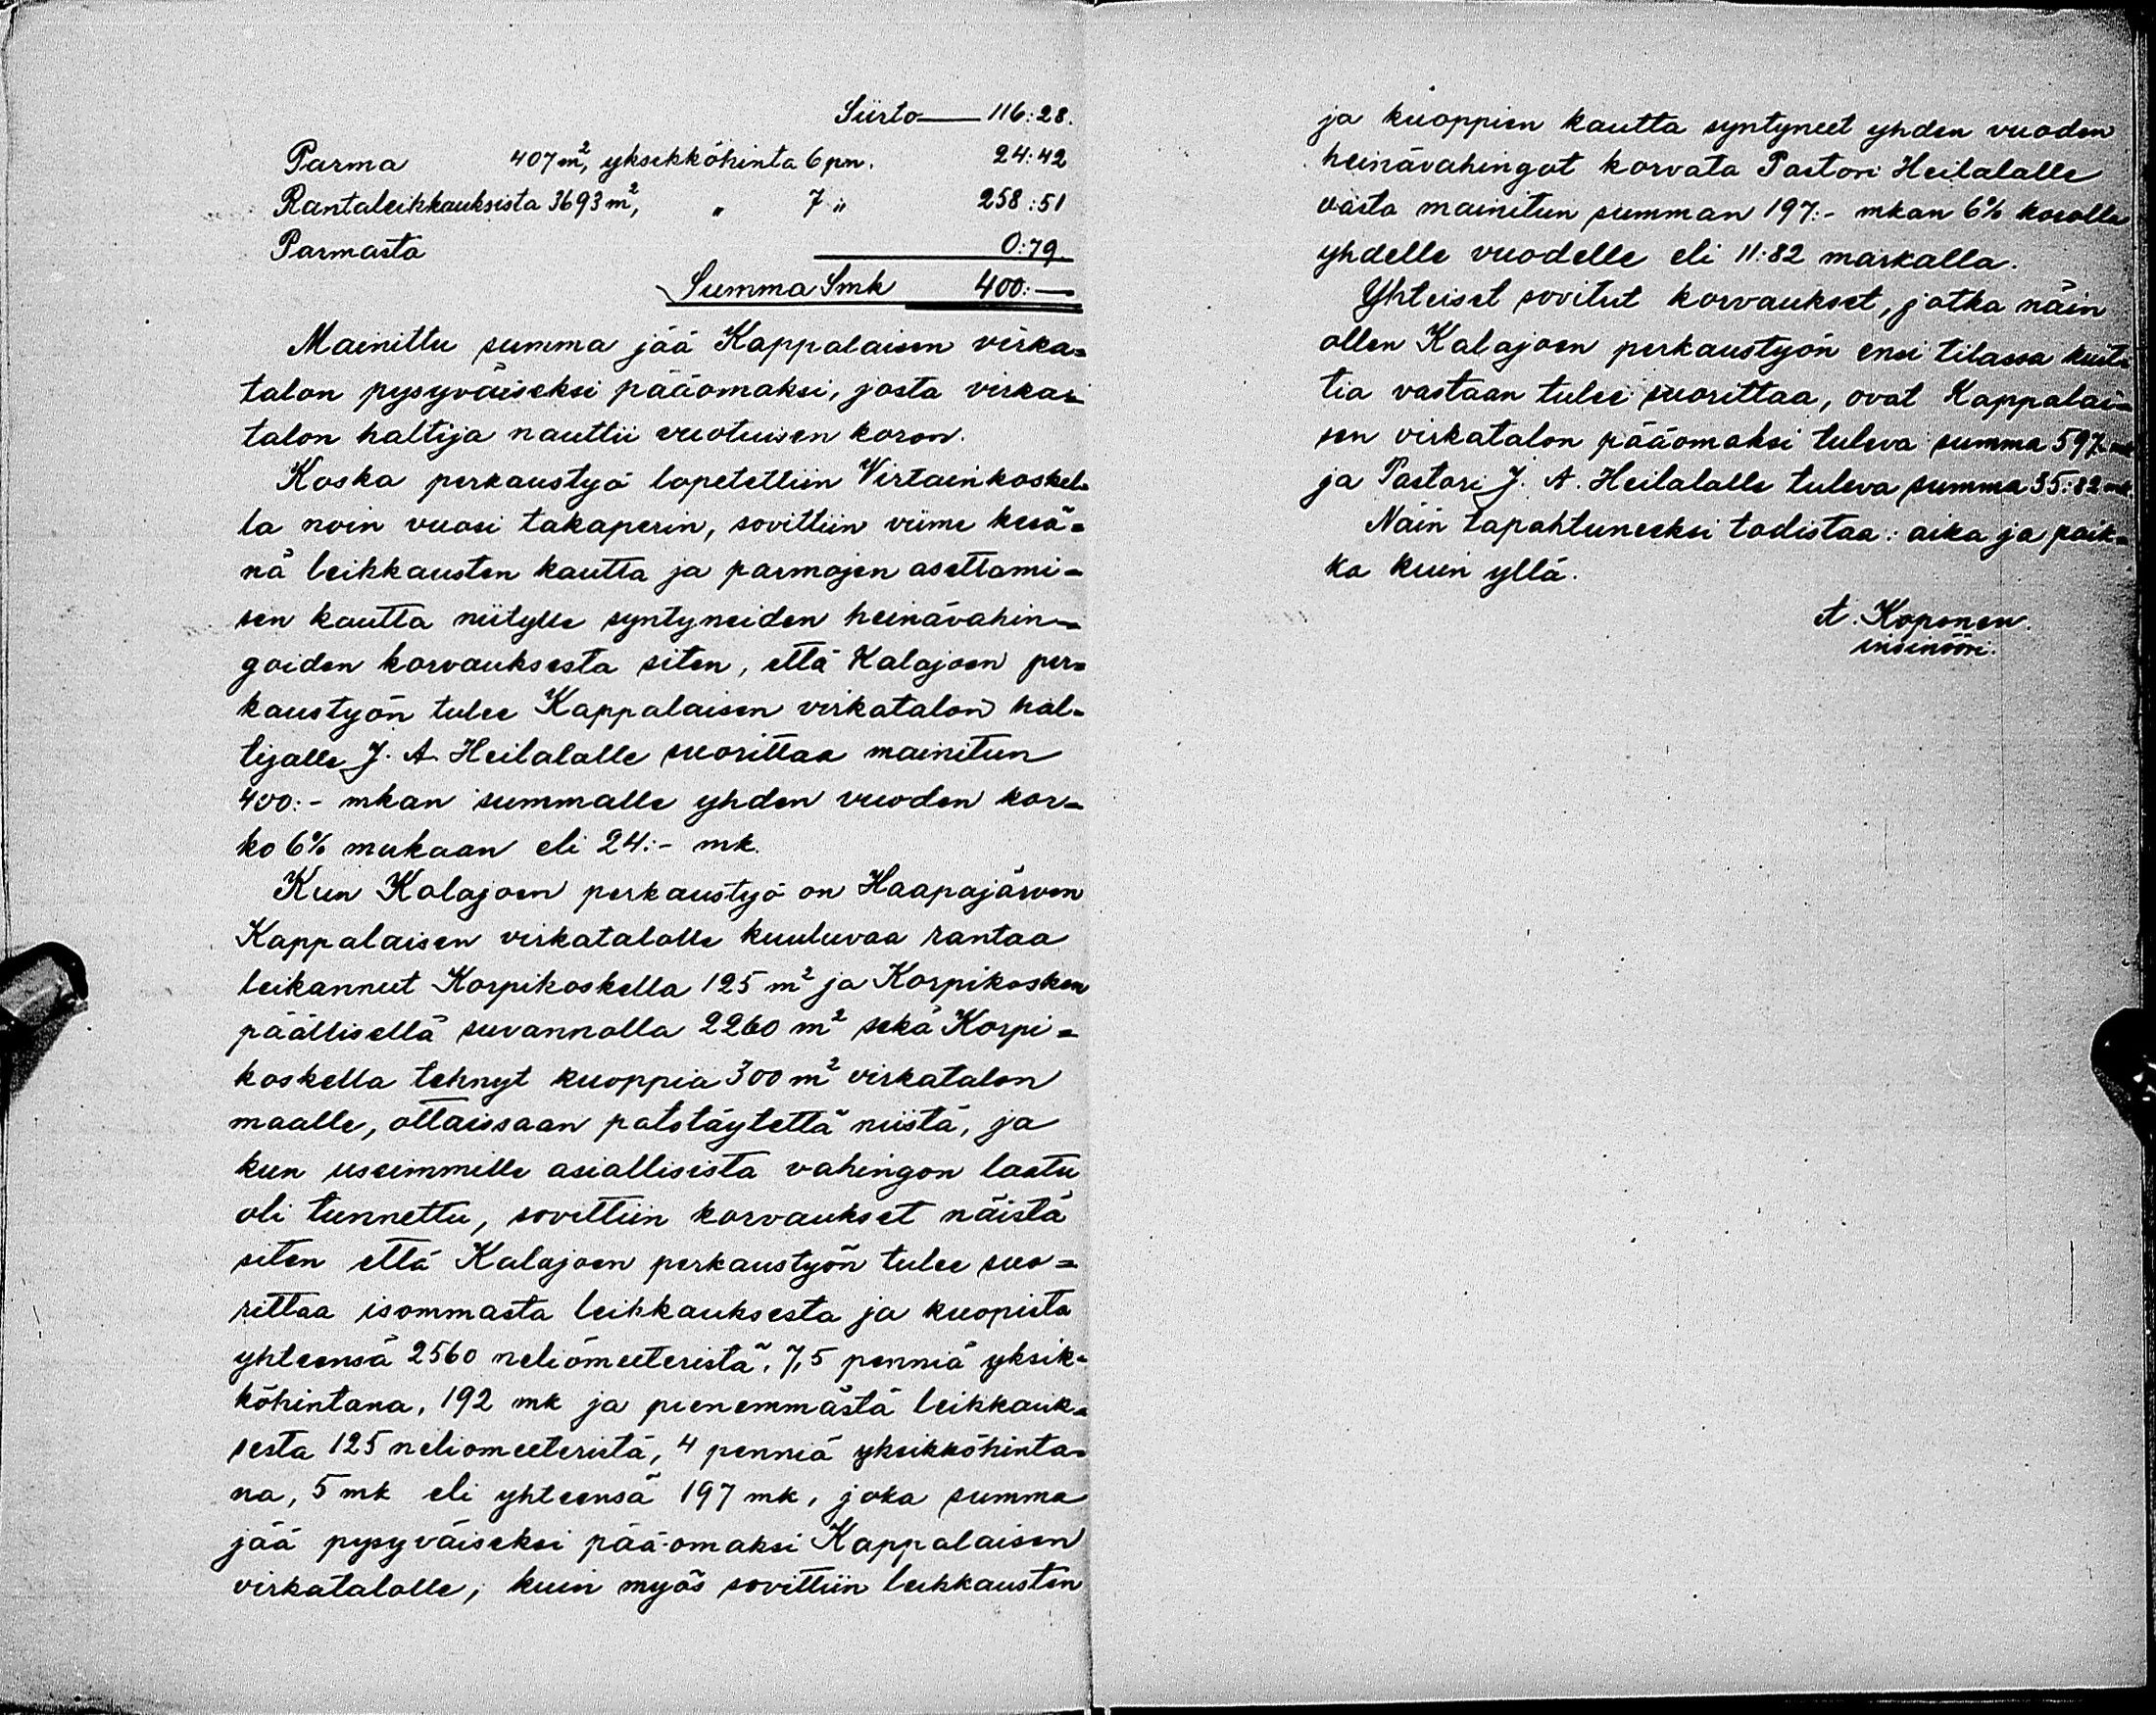 Siirto — 116:28.
Parma 407 m², yksikköhinta 6 pn. 24:42
Rantaleikkauksista 3693 m², " 7 " 258:51
Parmasta 0:79
Summa Smk 400:—
Mainittu summa jää Kappalaisen virka=
talon pysyväiseksi pääomaksi, josta virka=
talon haltija nauttii vuotuisen koron.
Koska perkaustyö lopetettiin Virtainkoskel=
la noin vuosi takaperin, sovittiin viime kesä=
nä leikkausten kautta ja parmojen asettami=
sen kautta niitylle syntyneiden heinävahin=
goiden korvauksesta siten, että Kalajoen per=
kaustyön tulee Kappalaisen virkatalon hal=
tijalle J. A. Heilalalle suorittaa mainitun
400:- mkan summalle yhden vuoden kor=
ko 6% mukaan eli 24:- mk.
Kun Kalajoen perkaustyö on Haapajärven
Kappalaisen virkatalolle kuuluvaa rantaa
leikannut Korpikoskella 125 m² ja Korpikosken
päällisellä suvannolla 2260 m² sekä Korpi=
koskella tehnyt kuoppia 300 m² virkatalon
maalle, ottaissaan patotäytettä niistä, ja
kun useimmille asiallisista vahingon laatu
oli tunnettu, sovittiin korvaukset näistä
siten että Kalajoen perkaustyön tulee suo=
rittaa isommasta leikkauksesta ja kuopista
yhteensä 2560 neliömeeteristä, 7,5 penniä yksik=
köhintana, 192 mk ja pienemmästä leikkauk=
sesta 125 neliömeeteristä, 4 penniä yksikköhinta=
na, 5 mk eli yhteensä 197 mk, joka summa
jää pysyväiseksi pää-omaksi Kappalaisen
virkatalolle, kuin myös sovittiin leikkausten
ja kuoppien kautta syntyneet yhden vuoden
heinävahingot korvata Pastori Heilalalle
vasta mainitun summan 197:- mkan 6% korolla
yhdelle vuodelle eli 11:82 markalla.
Yhteiset sovitut korvaukset, jotka näin
ollen Kalajoen perkaustyön ensi tilassa kuit=
tia vastaan tulee suorittaa, ovat Kappalai=
sen virkatalon pääomaksi tuleva summa 597:- mk
ja Pastori J. A. Heilalalle tuleva summa 35:82 mk
Näin tapahtuneeksi todistaa: aika ja paik=
ka kuin yllä.
A. Koponen.
insinööri.